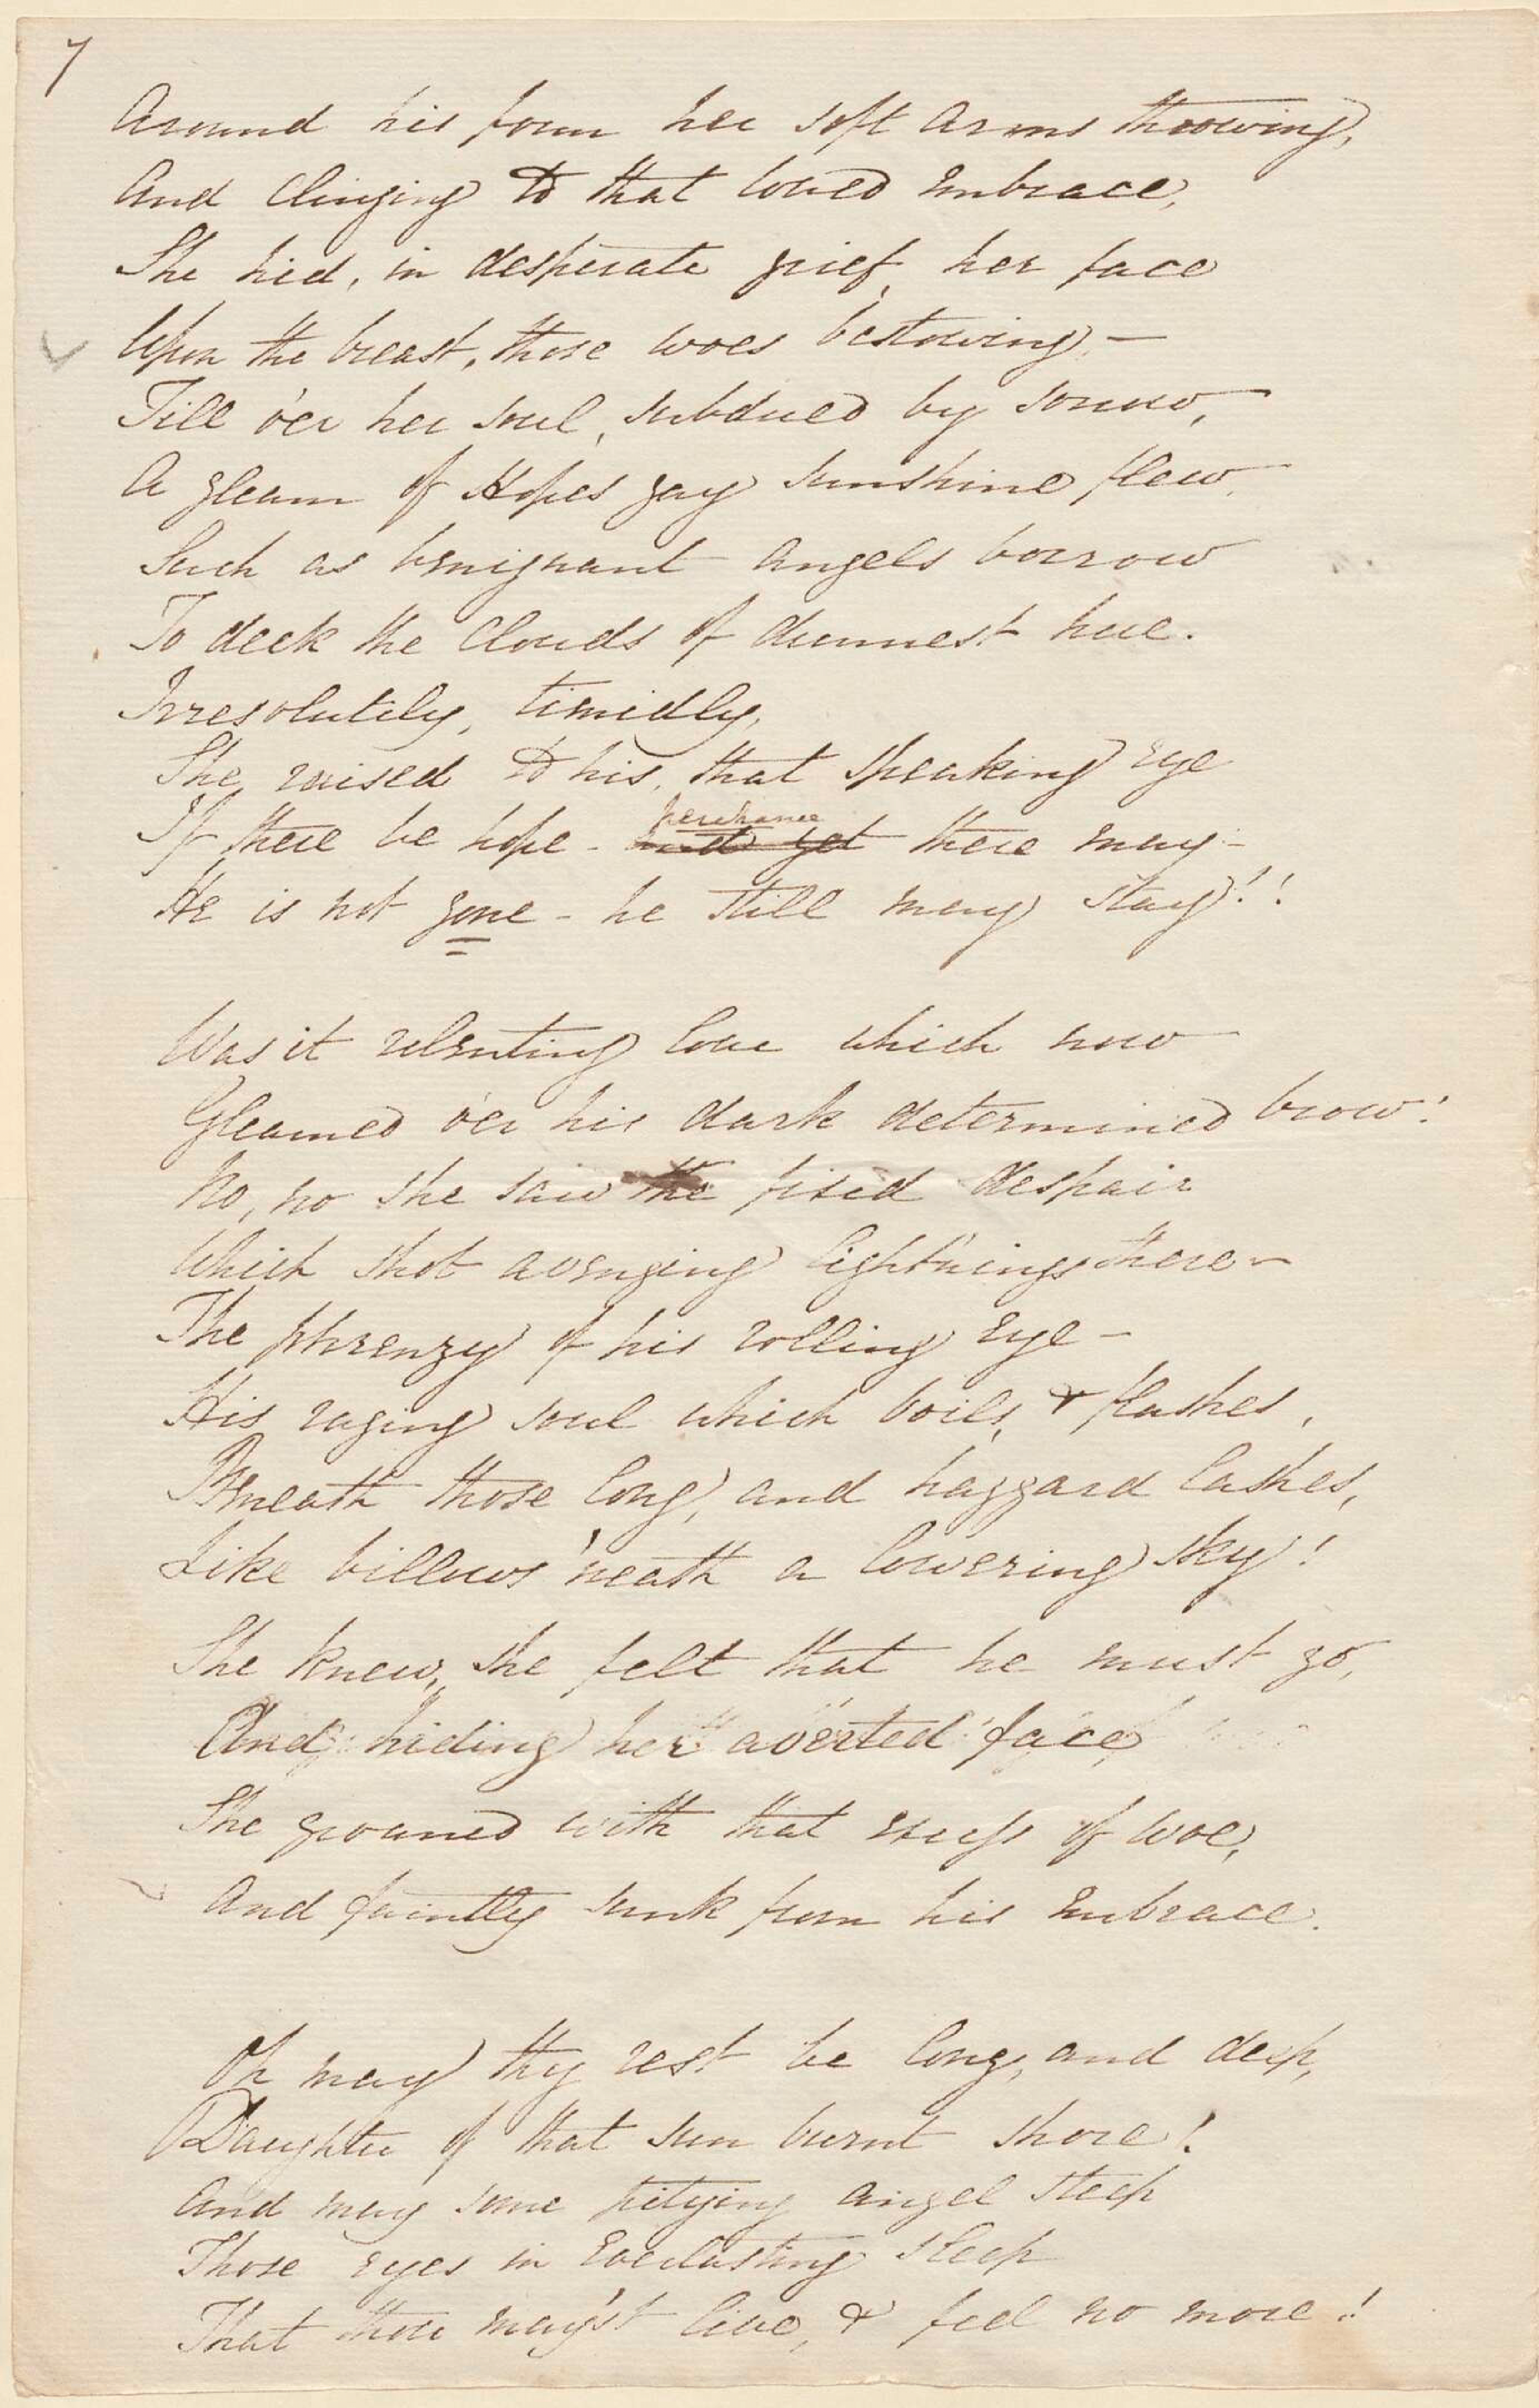 7
Around his form her soft arms throwing,
And clinging to that loved embrace,
She hid, in desperate grief, her face
Upon the breast, those woes bestowing, —
Till o'er her soul, subdued by sorrow,
A gleam of Hopes gay sunshine flew,
Such as benignant angels borrow
To deck the Clouds of dunnest hue.
Irresolutely, timidly,
She raised to his, that speaking eye
perchance
If there be hope - and yet there may -
He is not gone - he still may stay!!
Was it relenting love which now
Gleamed o'er his dark determined brow!
No, no she saw the fixed despair
Which shot avenging light'nings there -
The phrenzy of his rolling eye -
His raging soul which boils, & flashes,
Beneath those long, and haggard lashes,
Like billows 'neath a lowering sky!
She knew, she felt that he must go,
And, hiding her averted face,
She groaned with that excess of woe,
And faintly sunk from his embrace.
Oh may thy rest be long, and deep,
Daughter of that sun burnt shore!
And may some pitying angel steep
Those eyes in everlasting sleep
That thou may'st live, & feel no more!